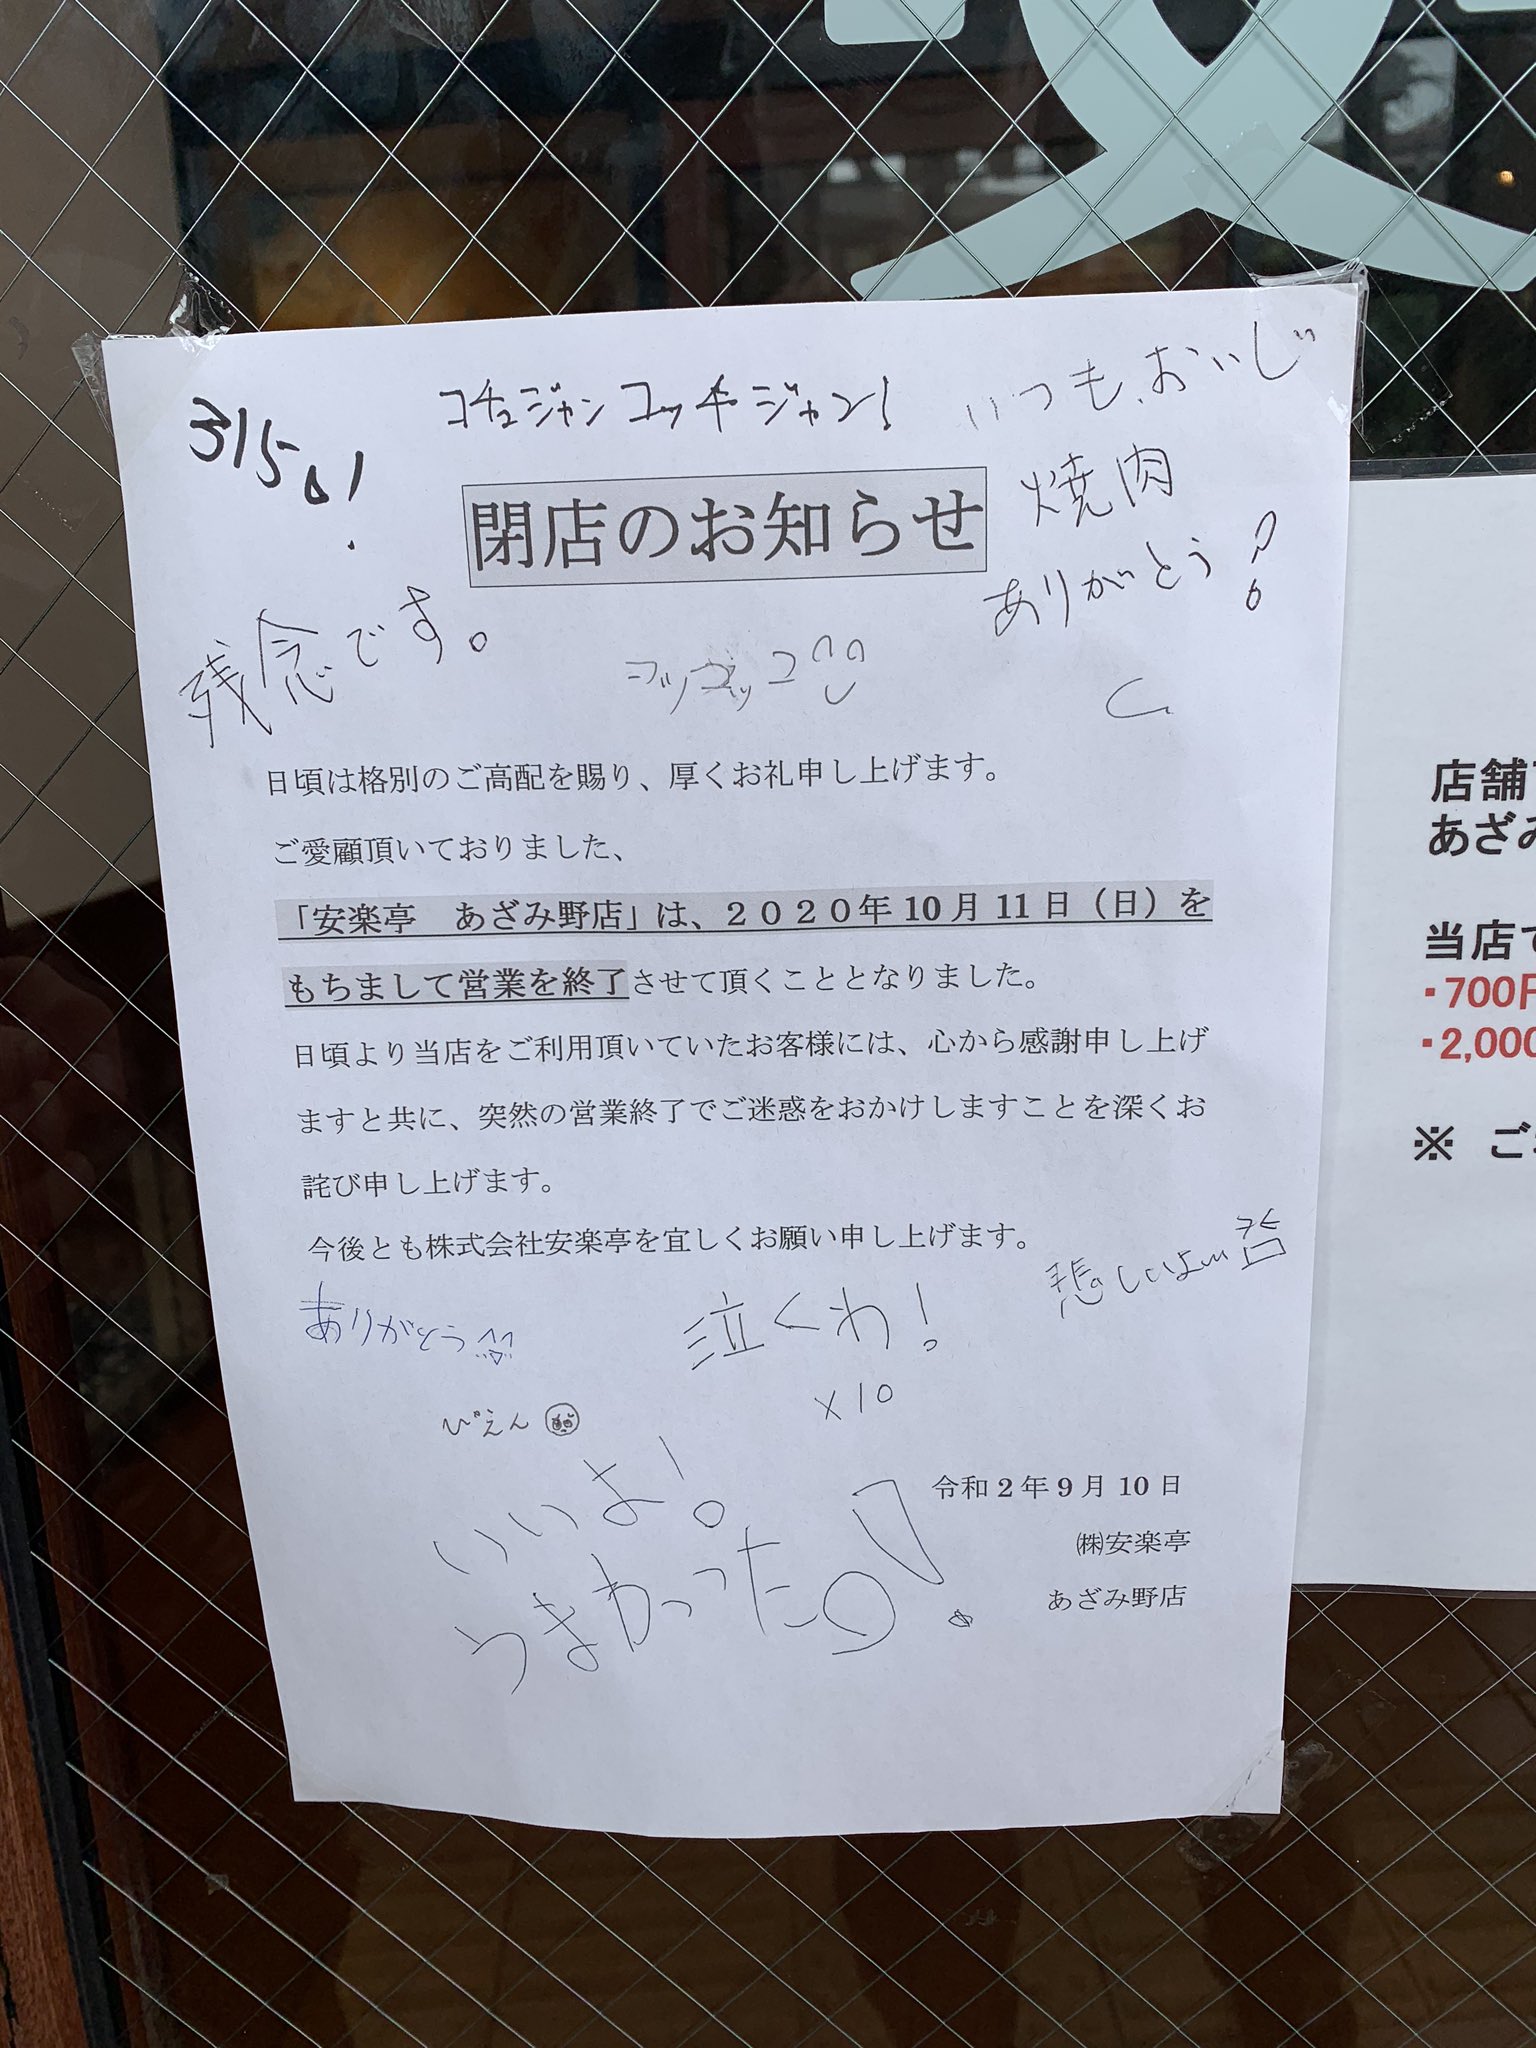 コチュジャンコッチジャン!
いつも、おいしい
焼肉
ありがとう!
315
閉店のお知らせ
残念です。
日頃は格別のご高配を賜り、厚くお礼申し上げます。
ご愛顧頂いておりました、
「安楽亭　あざみ野店」は、2020年10月11日（日）を
もちまして営業を終了させて頂くこととなりました。
日頃より当店をご利用頂いていたお客様には、心から感謝申し上げ
ますと共に、突然の営業終了でご迷惑をおかけしますことを深くお
詫び申し上げます。
今後とも株式会社安楽亭を宜しくお願い申し上げます。
悲しいよ
ありがとう
泣くわ!
×10
ぴえん
いいよ!
うまかったっ!
令和2年9月10日
㈱安楽亭
あざみ野店
店舗
あざみ
当店
・700円
・2,000
※ ご